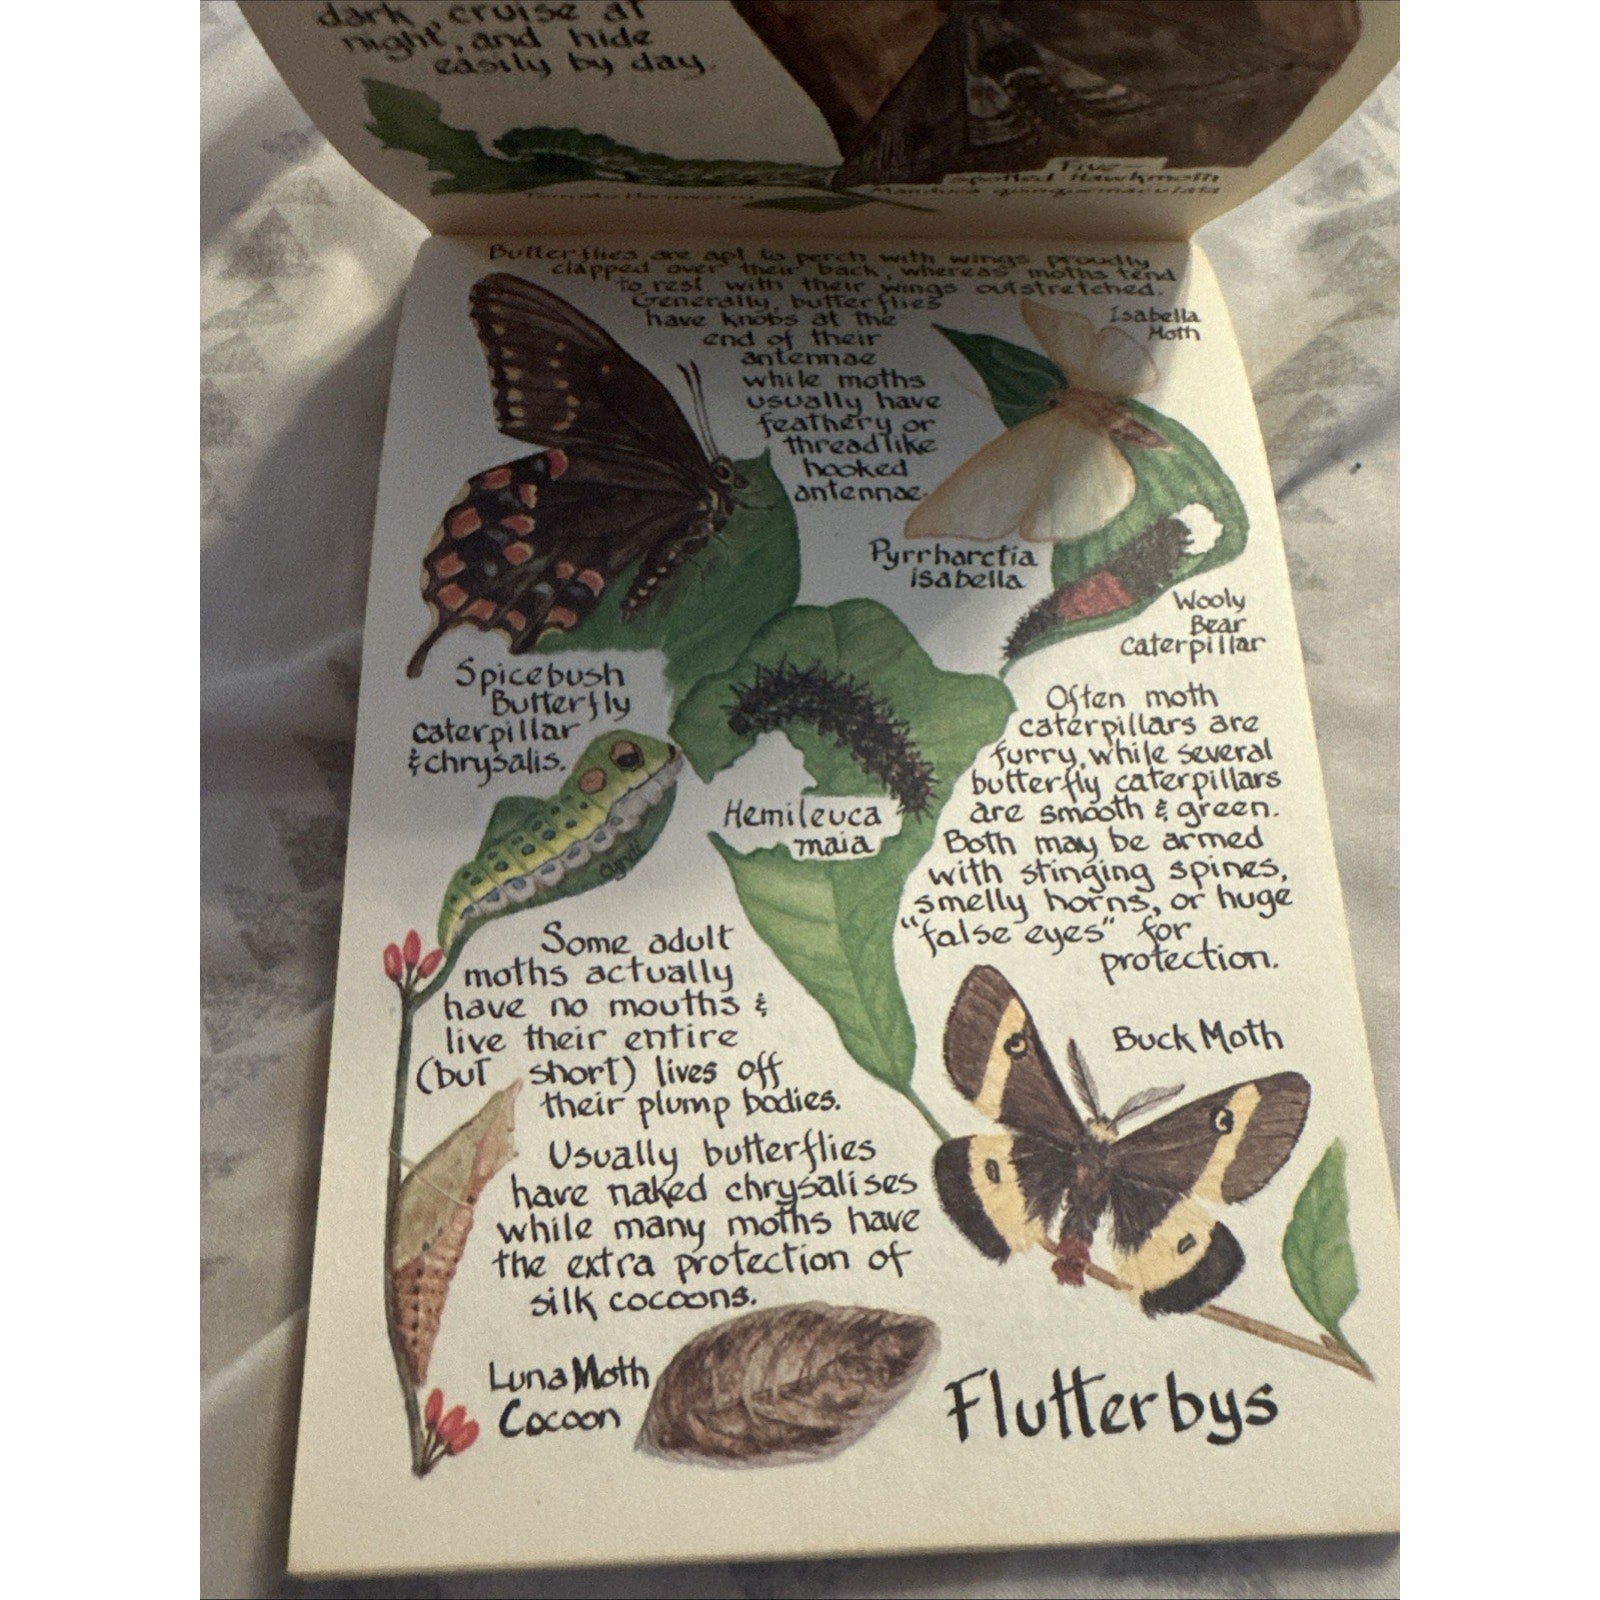 dark, cruise at
night, and hide
easily by day.
Five-
spotted Hawkmoth
Manduca quinquemaculata
Tomato Hornworm
Butterflies are apt to perch with wings proudly
clapped over their back, whereas moths tend
to rest with their wings outstretched.
Generally, butterflies
have knobs at the
end of their
antennae
while moths
usually have
feathery or
threadlike
hooked
antennae.
Isabella
Moth
Pyrrharctia
isabella
Wooly
Bear
caterpillar
Spicebush
Butterfly
caterpillar
& chrysalis.
Hemileuca
maia
Often moth
caterpillars are
furry, while several
butterfly caterpillars
are smooth & green.
Both may be armed
with stinging spines,
smelly horns, or huge
"false eyes" for
protection.
Some adult
moths actually
have no mouths &
live their entire
(but short) lives off
their plump bodies.
Buck Moth
Usually butterflies
have naked chrysalises
while many moths have
the extra protection of
silk cocoons.
Luna Moth
Cocoon
Flutterbys